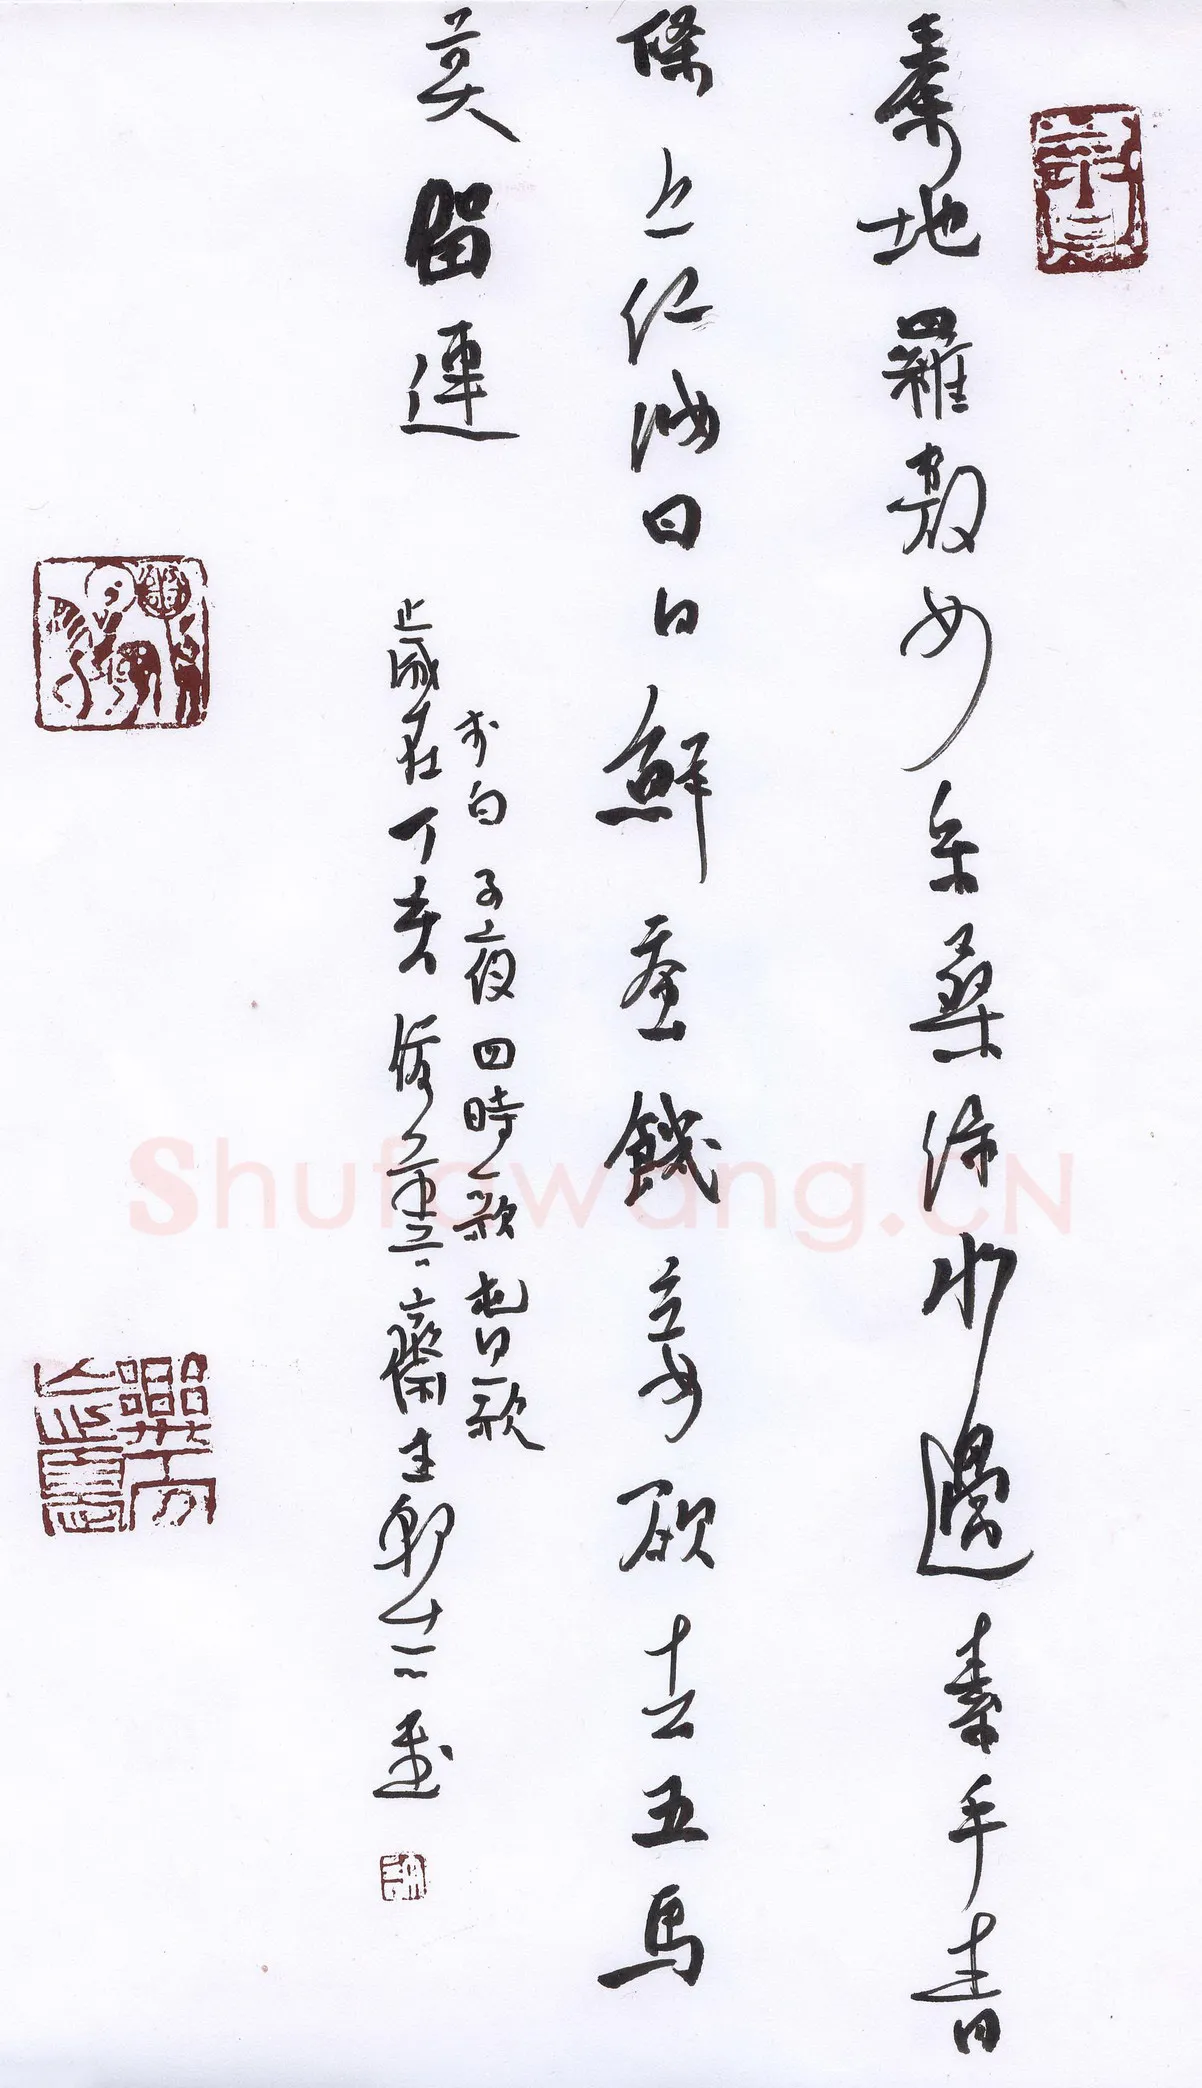 秦地羅敷女采桑綠水邊素手青
條上紅妝白日鮮蚕饑妾欲去五馬
莫留連
李白子夜四時歌春歌
歲在丁亥 齋主
Shufawang.CN